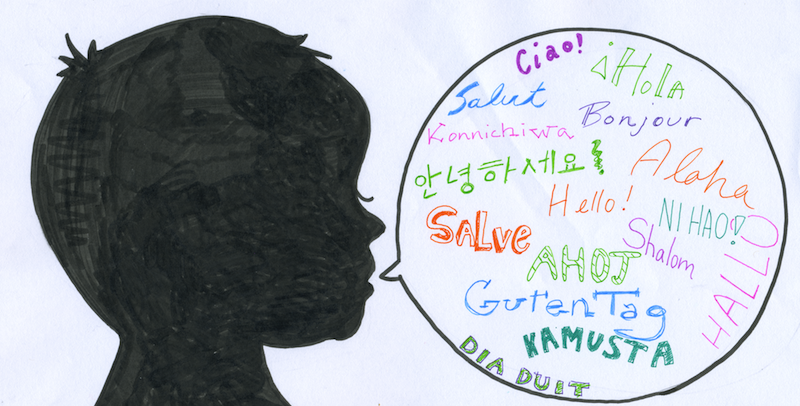 Ciao!
¡Hola
Salut
Bonjour
Konnichiwa
안녕하세요!
Aloha
Hello!
NI HAO!
SALVE
Shalom
AHOJ
HALLO
Guten Tag
KAMUSTA
DIA DUIT